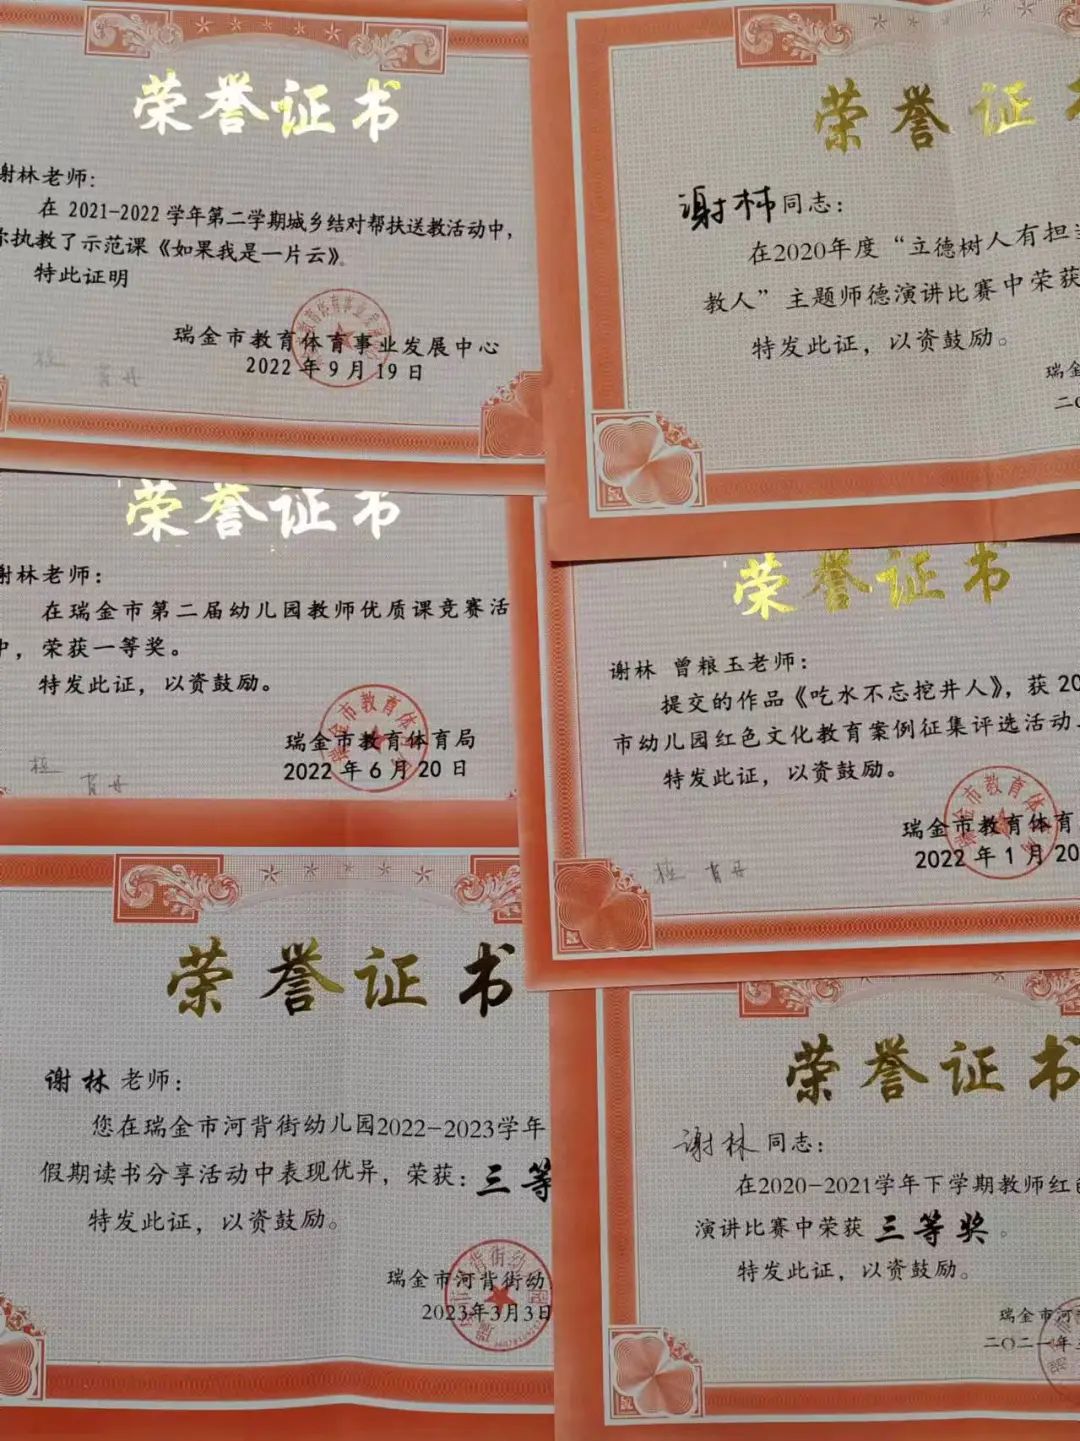 荣誉证书
谢林老师：
在 2021-2022 学年第二学期城乡结对帮扶送教活动中，
你执教了示范课《如果我是一片云》。
特此证明
瑞金市教育体育事业发展中心
2022 年 9 月 19 日
荣誉证书
谢林同志：
在2020年度“立德树人有担当
教人”主题师德演讲比赛中荣获
特发此证，以资鼓励。
瑞金
二〇
荣誉证书
谢林老师：
在瑞金市第二届幼儿园教师优质课竞赛活
中，荣获一等奖。
特发此证，以资鼓励。
瑞金市教育体育局
2022 年 6 月 20 日
荣誉证书
谢林 曾粮玉老师：
提交的作品《吃水不忘挖井人》，获 20
市幼儿园红色文化教育案例征集评选活动
特发此证，以资鼓励。
瑞金市教育体育
2022 年 1 月 20
荣誉证书
谢林 老师：
您在瑞金市河背街幼儿园2022-2023学年
假期读书分享活动中表现优异，荣获：三等
特发此证，以资鼓励。
瑞金市河背街幼
2023年3月3日
荣誉证书
谢林 同志：
在2020-2021学年下学期教师红色
演讲比赛中荣获 三等奖。
特发此证，以资鼓励。
瑞金市河
二〇二一年